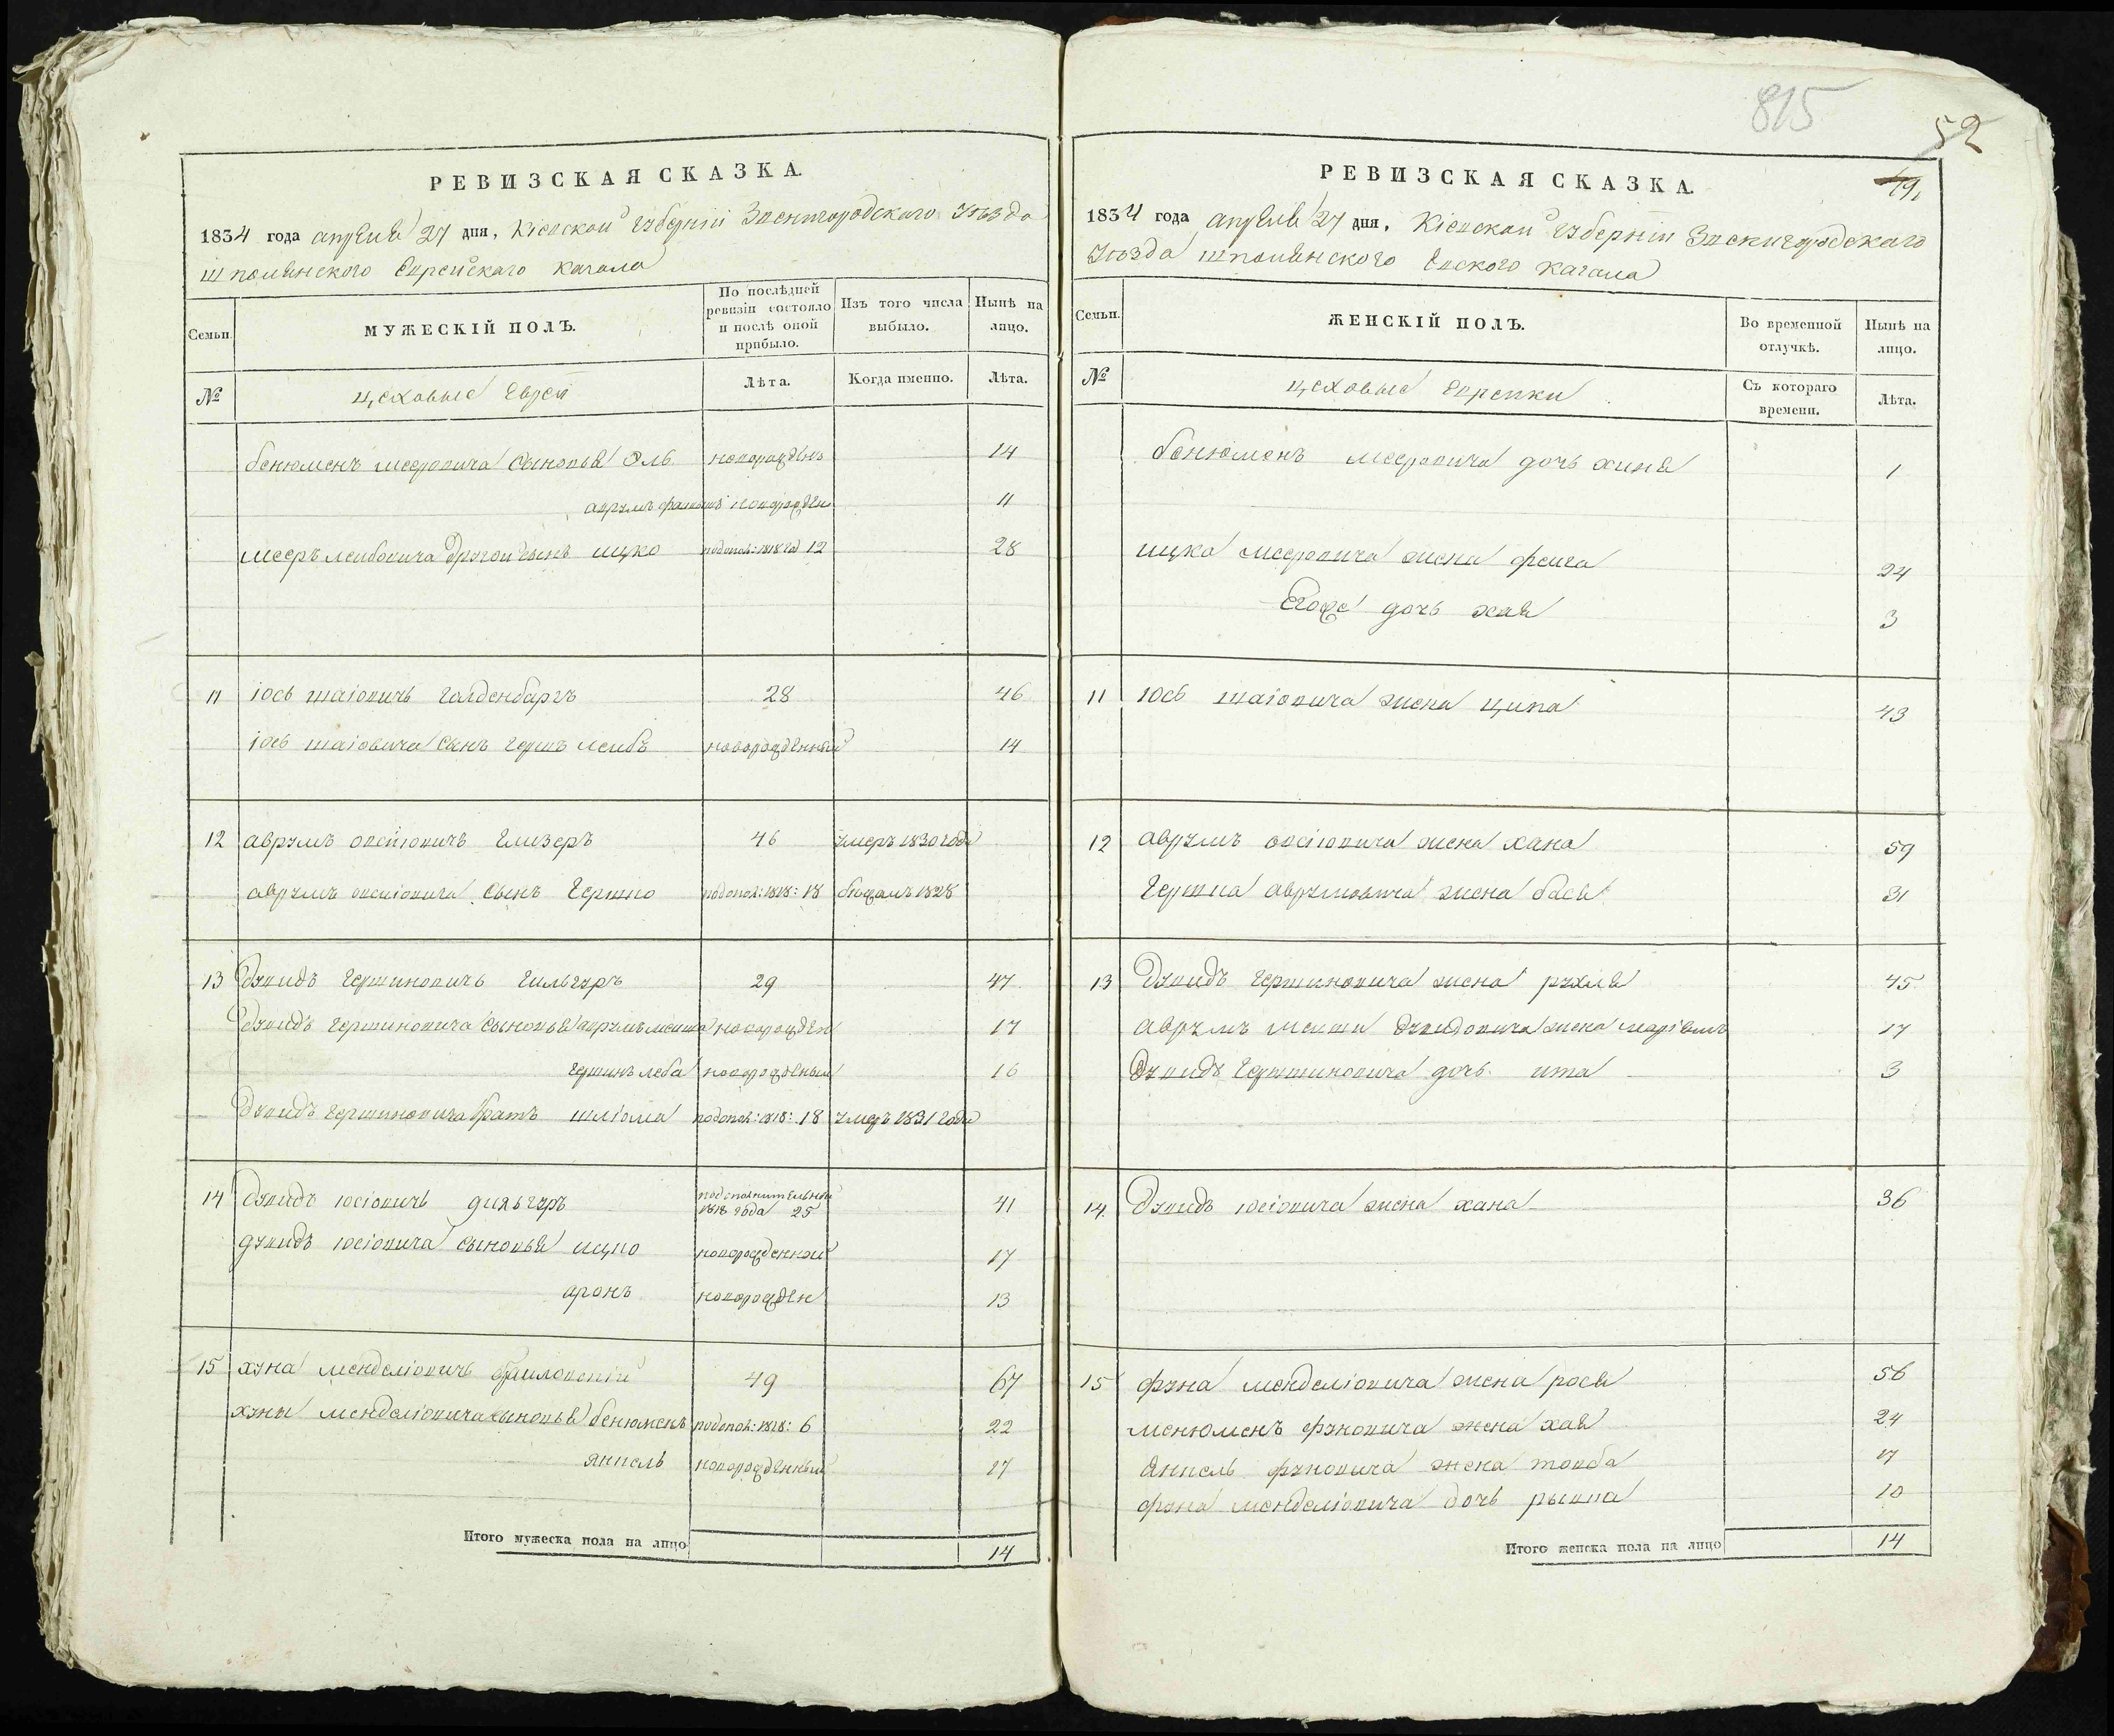 РЕВИЗСКАЯ СКАЗКА.
1834 года апреля 27 дня, Кіевской губерніи Звенигородского уѣзда
шполянского Еврейскаго кагала
Семьи.
МУЖЕСКІЙ ПОЛЪ.
По послѣдней ревизіи состояло и послѣ оной прибыло.
Изъ того числа выбыло.
Нынѣ на лицо.
№
цеховые Евреи
Лѣта.
Когда именно.
Лѣта.
бенюменъ меоровича сыновья Эль новорожденъ 14
аврумъ новорожден 11
меоръ лейбовича другои сынъ ицко по допол: 1818 го 12 28
11 іось шаіовичъ галденбаргъ 28 46
іось шаіовича сынъ герш леибъ новорожденный 14
12 аврумъ овсіовичъ глизеръ 46 умеръ 1830 года
аврумъ овсіовича сынъ гершко по допол: 1818: 18 1828
13 дувидъ гершиновичъ гильгуръ 29 47
дувидъ гершиновича сыновья аврумъ меиша новорожден 17
гершнъ леба новорожденый 16
дувидъ гершиновича братъ шліома по допол: 1818: 18 умеръ 1831 года
14 дувидъ іосіовичъ дильгуръ по дополнительной 1818 года 25 41
дувидъ іосіовича сыновья ицко новорожденной 17
аронъ новорожден 13
15 хуна менделіовичъ 49 67
хуны менделіовича сыновья бенюменъ по допол: 1818: 6 22
янкель новорожденный 17
Итого мужеска пола на лицо 14
815
52
49
РЕВИЗСКАЯ СКАЗКА.
1834 года апреля 27 дня, Кіевской губерніи Звенигородскаго
уѣзда шполянского Евского кагала
Семьи.
ЖЕНСКІЙ ПОЛЪ.
Во временной отлучкѣ.
Нынѣ на лицо.
№
цеховые Еврейки
Съ котораго времени.
Лѣта.
бенюменъ меоровича дочь хиня 1
ицка меоровича жена феига 24
Егоже дочь хая 3
11 іось шаіовича жена ципа 43
12 аврумъ овсіовича жена хана 59
гершка аврумовича жена бася 31
13 дувидъ гершиновича жена рухля 45
аврумъ меиши дувидовича жена маріемъ 17
дувидъ гершиновича дочь ита 3
14 дувидъ іосіовича жена хана 36
15 фуна менделіовича жена рося 56
менюменъ фуновича жена хая 24
янкель фуновича жена товба 17
фуна менделіовича дочь рывка 10
Итого женска пола на лицо 14